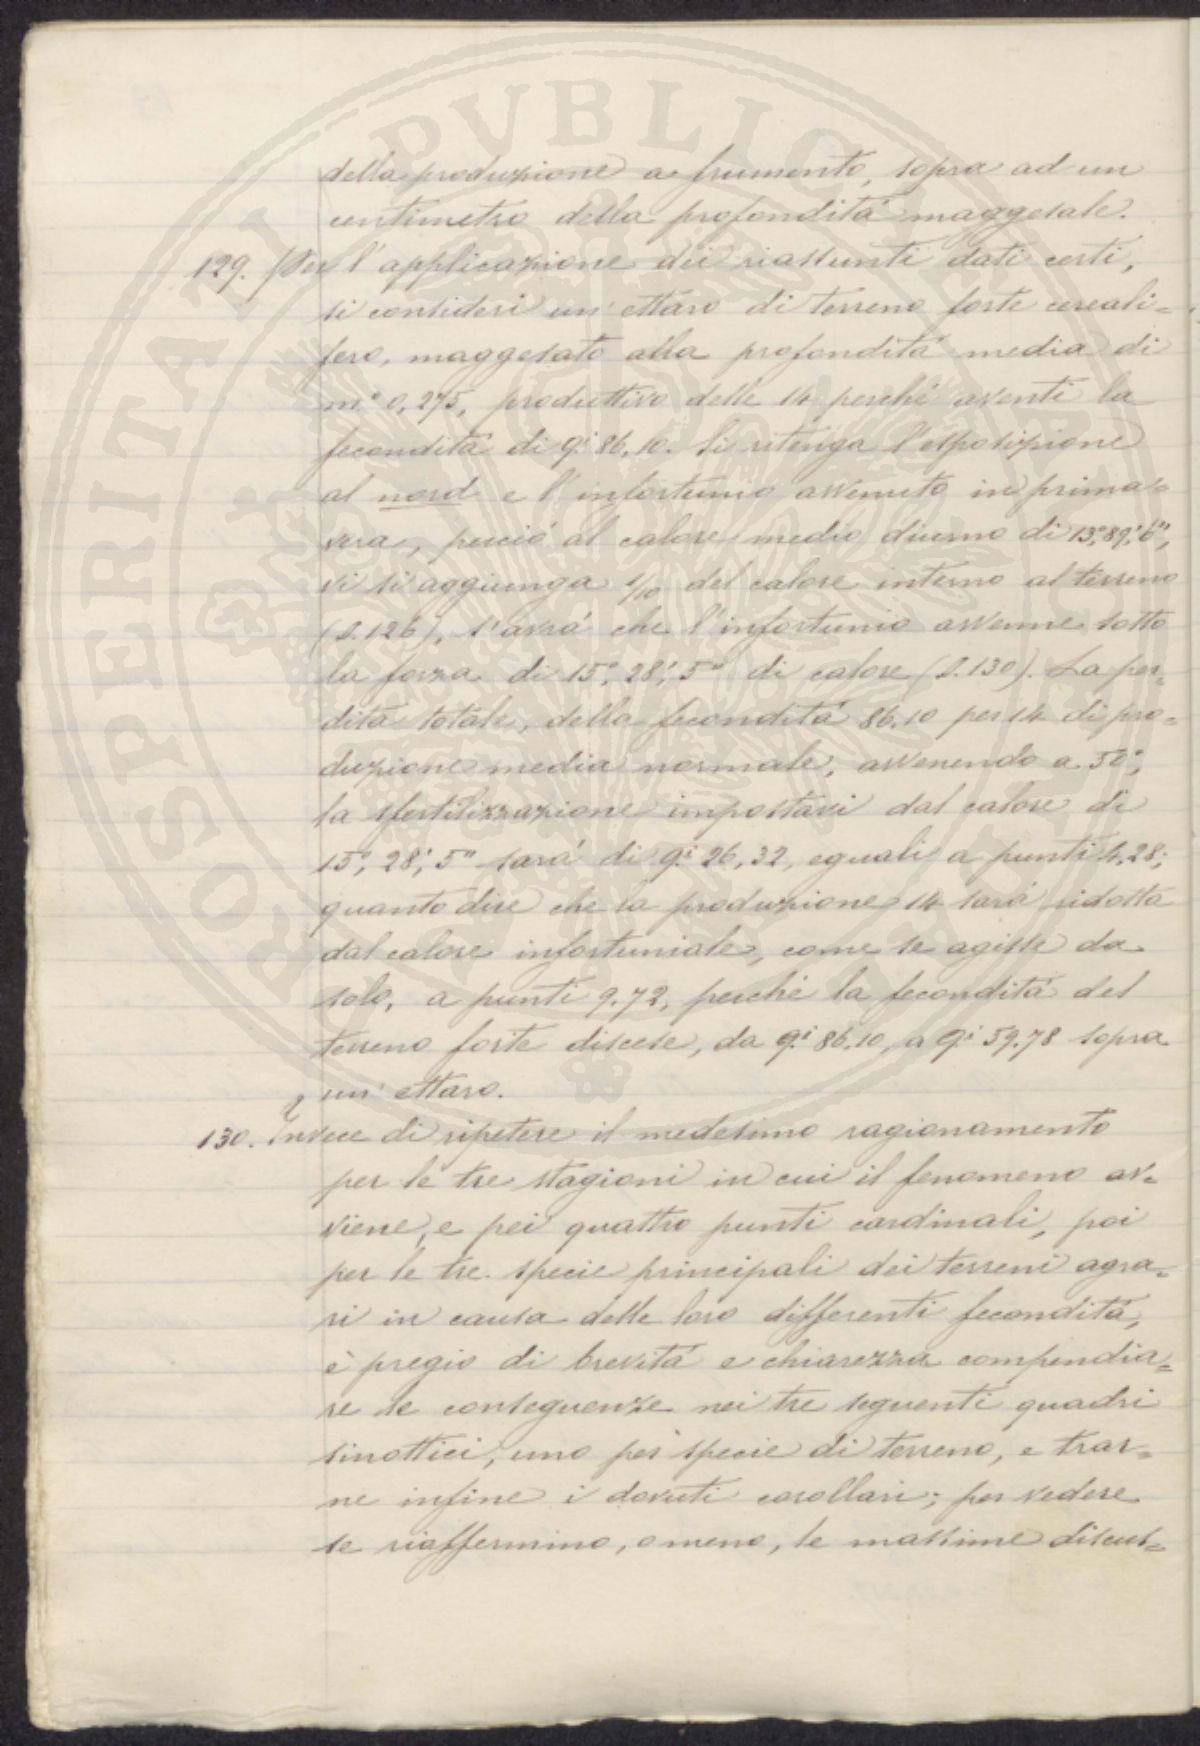 della produzione a frumento, sopra ad un
centimetro della profondità maggesale.
129. Per l'applicazione dei riassunti dati certi,
si consideri un' ettaro di terreno forte cereali=
fero, maggesato alla profondità media di
m.º 0,275, produttivo delle 14 perché aventi la
fecondità di q.i 86,10. Si ritenga l'esposizione
al nord e l'infortunio avvenuto in prima=
vera, perciò al calore medio diurno di 13º,89',6",
vi si aggiunga 1/10 del calore interno al terreno
(§.126), s'avrà che l'infortunio avvenne sotto
la forza di 15º, 28', 5" di calore (§.130). La per=
dita totale, della fecondità 86.10 per 14 di pro=
duzione media normale, avvenendo a 50º,
la sfertilizzazione impostavi dal calore di
15º, 28', 5" sarà di q.i 26,32, eguali a punti 4,28;
quanto dire che la produzione 14 sarà ridotta
dal calore infortuniale, come se agisse da
solo, a punti 9.72, perché la fecondità del
terreno forte discese, da q.i 86.10, a q.i 59.78 sopra
un' ettaro.
130. Invece di ripetere il medesimo ragionamento
per le tre stagioni in cui il fenomeno av=
viene, e pei quattro punti cardinali, poi
per le tre specie principali dei terreni agra=
ri in causa delle loro differenti fecondità,
è pregio di brevità e chiarezza compendia=
re le conseguenze nei tre seguenti quadri
sinottici, uno per specie di terreno, e trar=
ne infine i dovuti corollari; per vedere
se riaffermino, o meno, le massime discus=
PROSPERITATI PUBLICAE